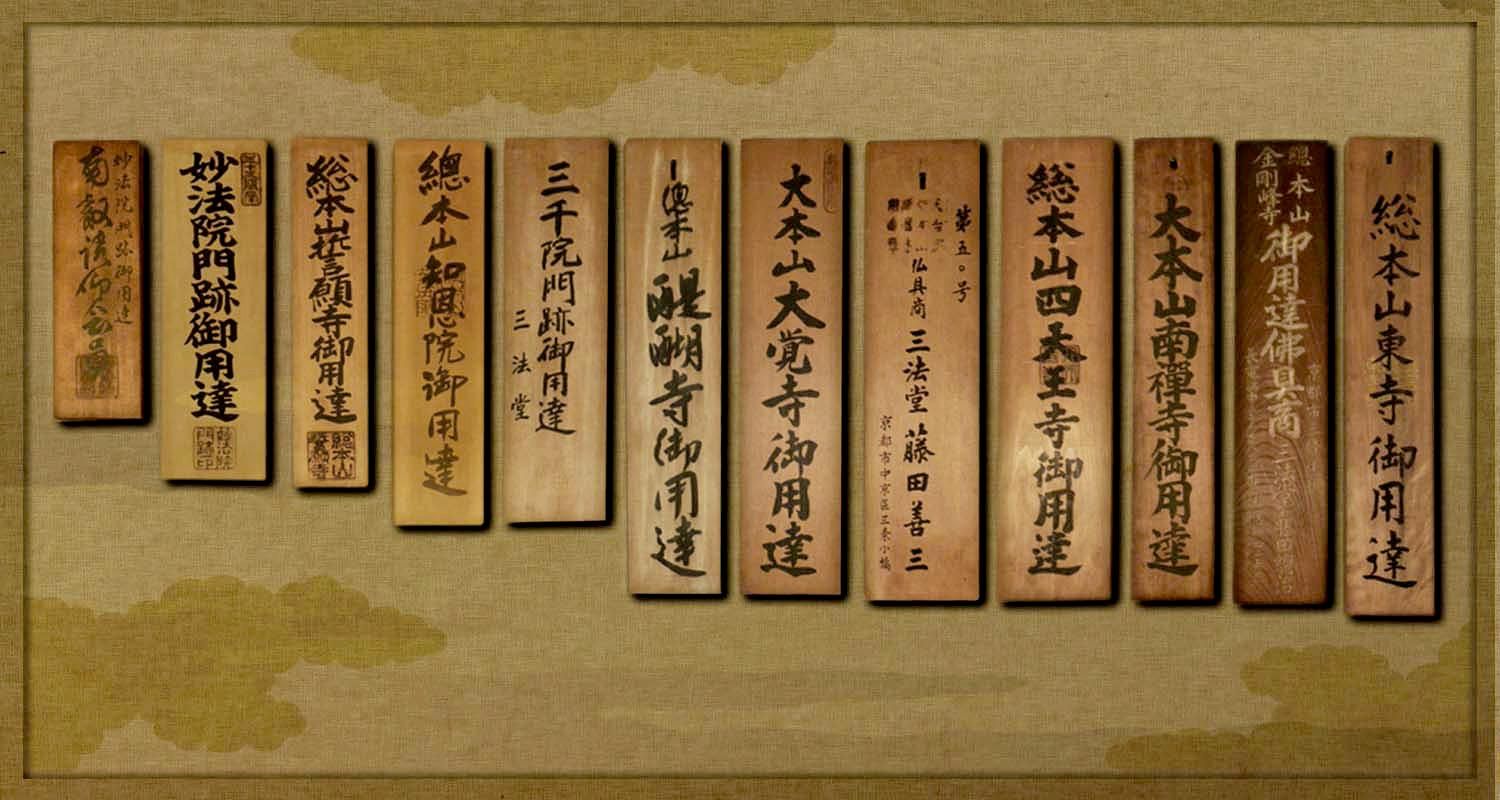 総本山東寺御用達
總本山
金剛峰寺
御用達佛具商
大本山南禪寺御用達
総本山四天王寺御用達
第五〇号
仏具商 三法堂 藤田善三
京都市中京区三条小橋
大本山大覚寺御用達
總本山 醍醐寺御用達
三千院門跡御用達
三法堂
總本山知恩院御用達
総本山誓願寺御用達
総本山
誓願寺
妙法院門跡御用達
妙法院
門跡印
妙法院門跡御用達